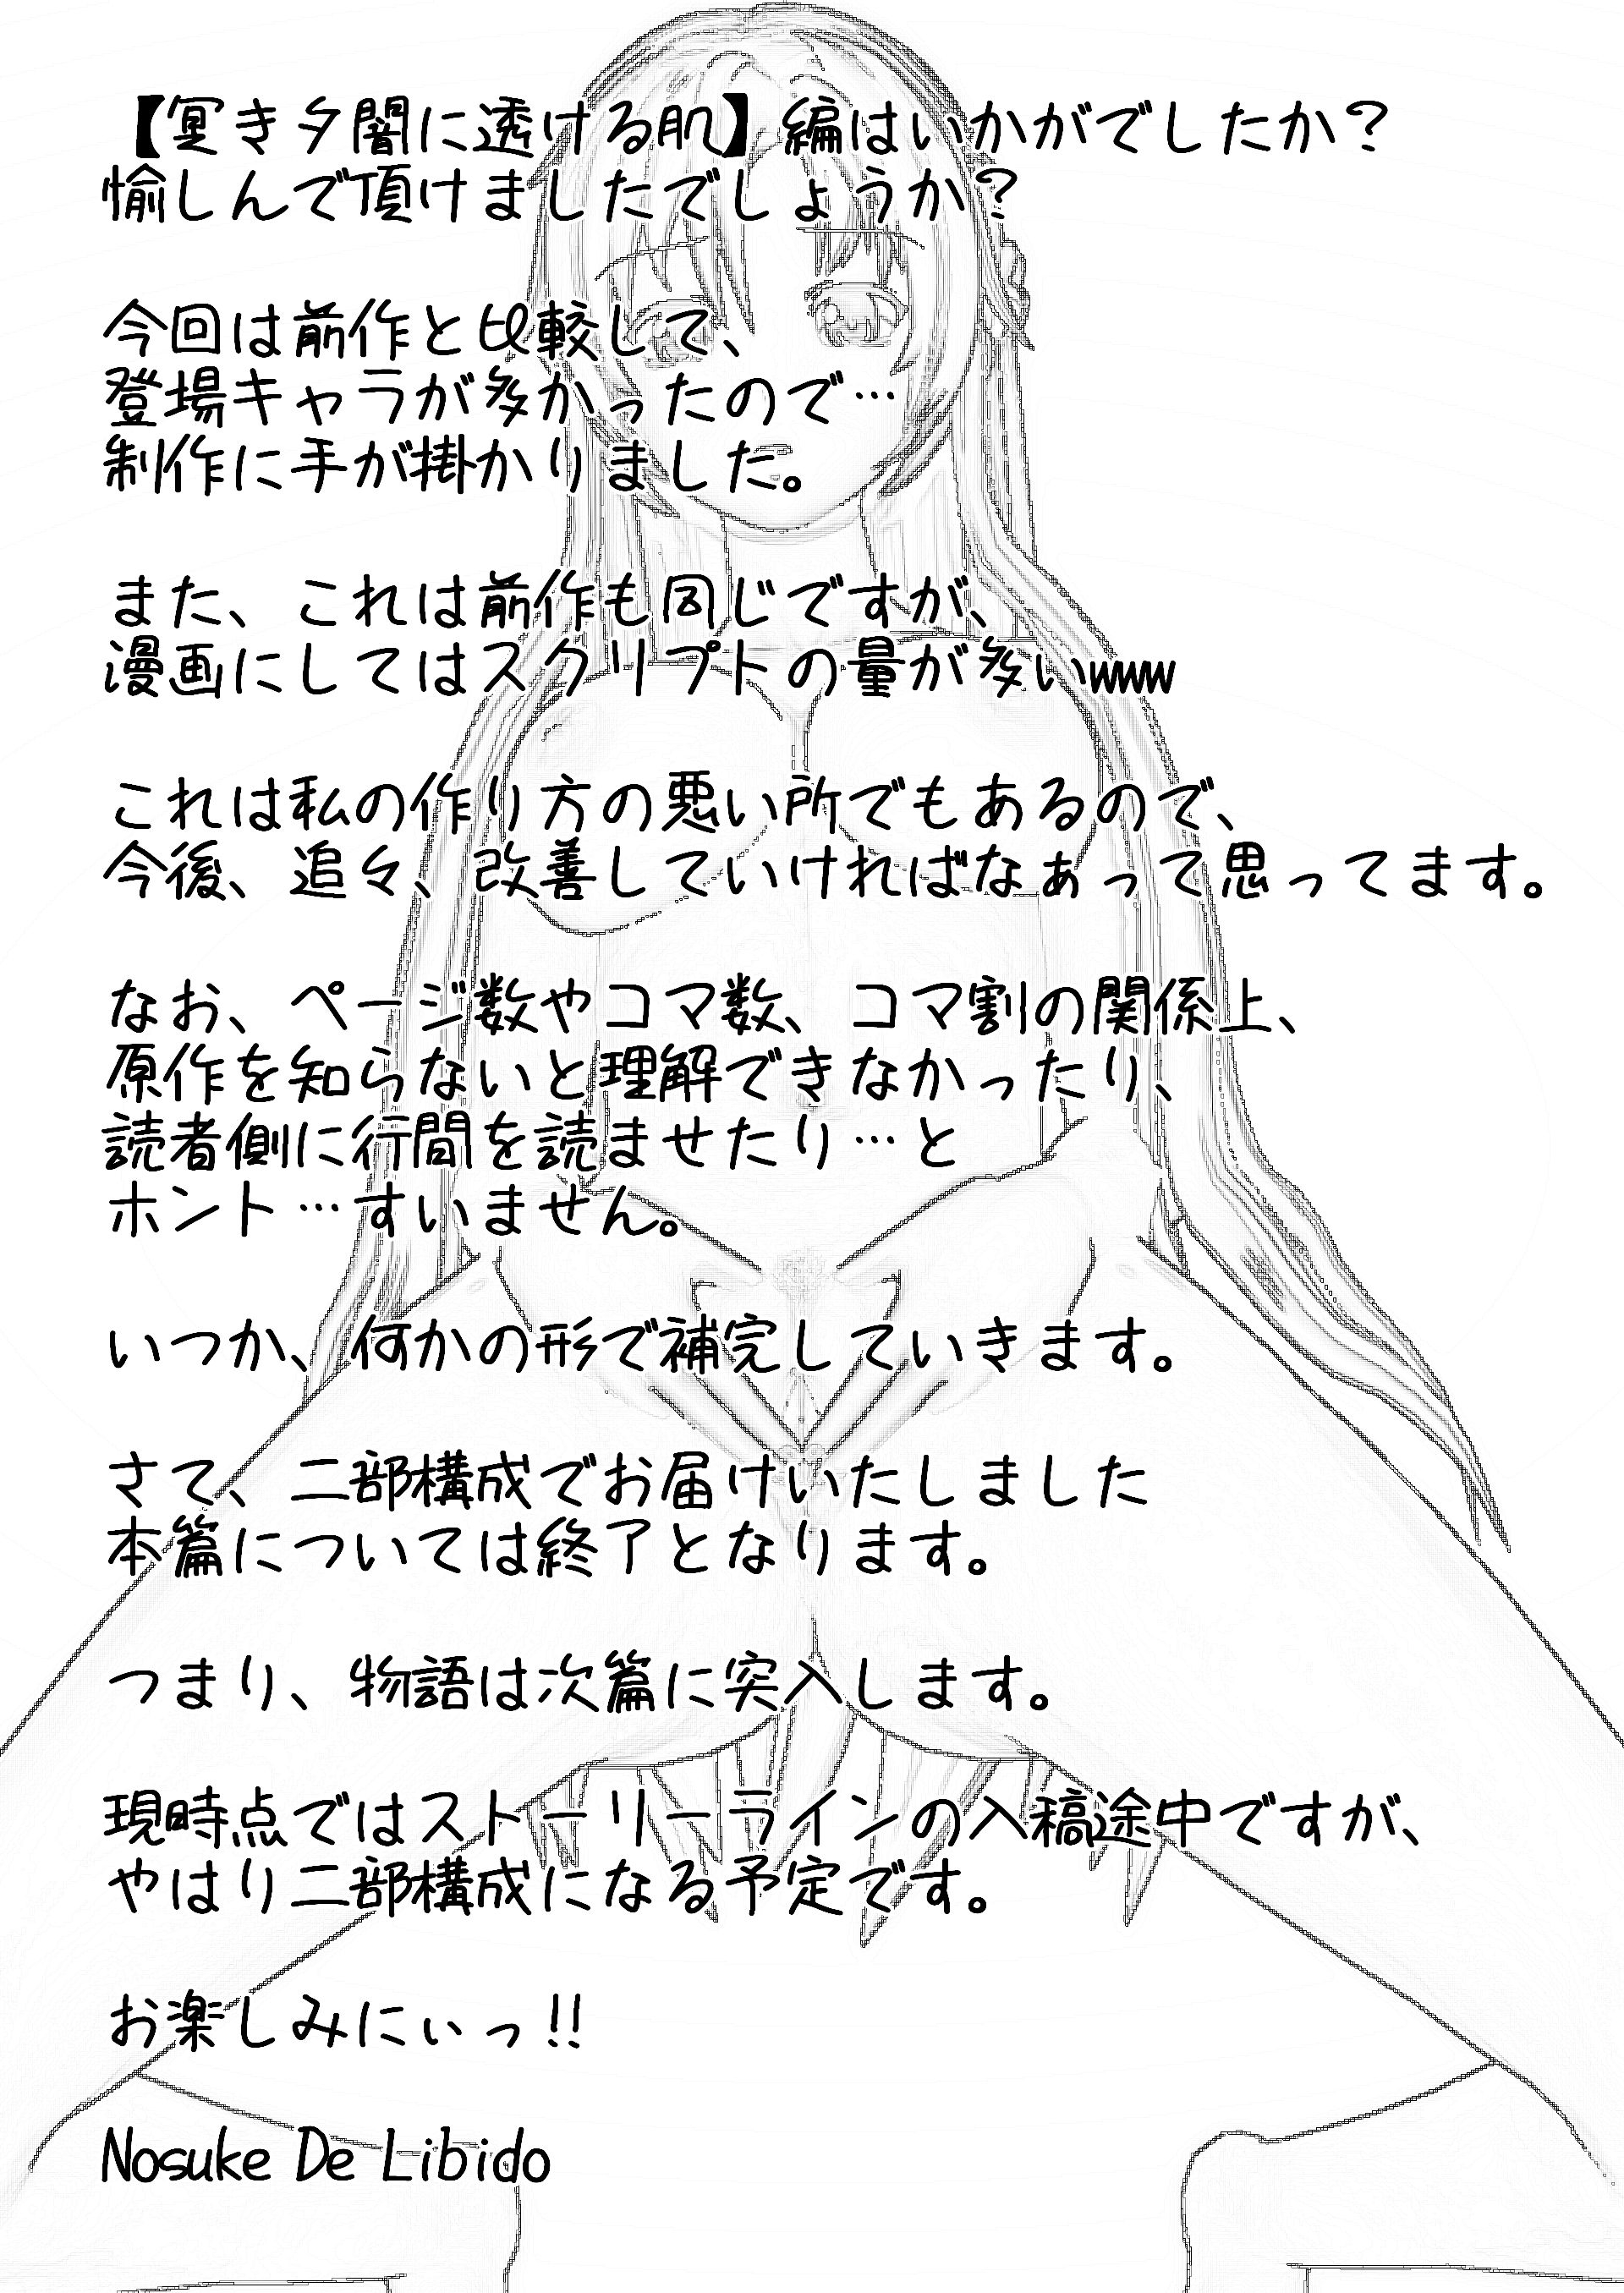 【冥き夕闇に透ける肌】編はいかがでしたか？
愉しんで頂けましたでしょうか？
今回は前作と比較して、
登場キャラが多かったので…
制作に手が掛かりました。
また、これは前作も同じですが、
漫画にしてはスクリプトの量が多いwww
これは私の作り方の悪い所でもあるので、
今後、追々、改善していければなぁって思ってます。
なお、ページ数やコマ数、コマ割の関係上、
原作を知らないと理解できなかったり、
読者側に行間を読ませたり…と
ホント…すいません。
いつか、何かの形で補完していきます。
さて、二部構成でお届けいたしました
本篇については終了となります。
つまり、物語は次篇に突入します。
現時点ではストーリーラインの入稿途中ですが、
やはり二部構成になる予定です。
お楽しみにぃっ!!
Nosuke De Libido